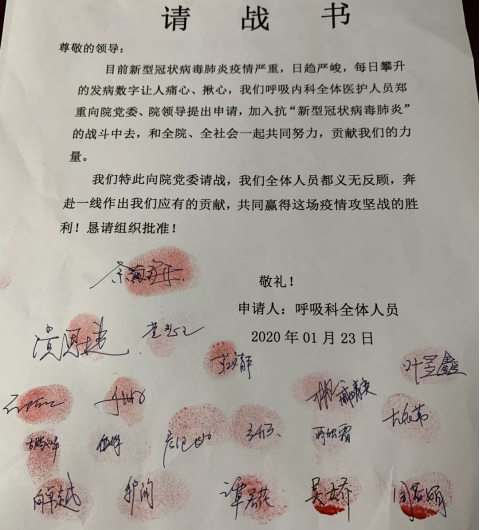 请战书
尊敬的领导：
目前新型冠状病毒肺炎疫情严重，日趋严峻，每日攀升
的发病数字让人痛心、揪心，我们呼吸内科全体医护人员郑
重向院党委、院领导提出申请，加入抗“新型冠状病毒肺炎”
的战斗中去，和全院、全社会一起共同努力，贡献我们的力
量。
我们特此向院党委请战，我们全体人员都义无反顾，奔
赴一线作出我们应有的贡献，共同赢得这场疫情攻坚战的胜
利！恳请组织批准！
敬礼！
申请人：呼吸科全体人员
2020年01月23日
向卓越
吴娇